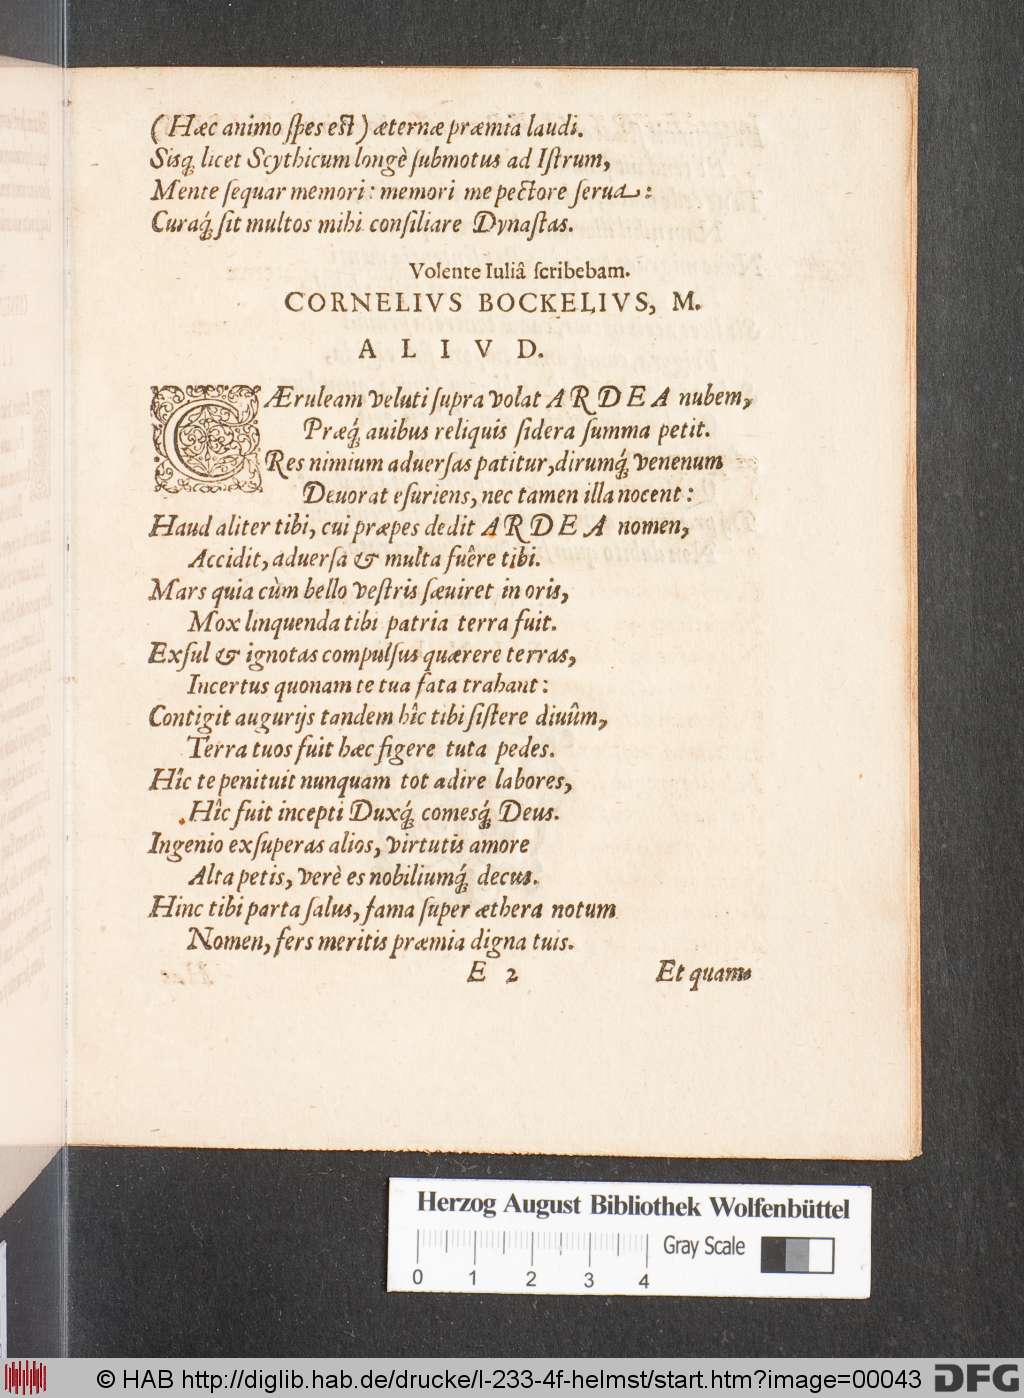 (Hæc animo ſpes eſt) æternæ præmia laudi.
Sisq́; licet Scythicum longè ſubmotus ad Iſtrum,
Mente ſequar memori: memori me pectore ſerua:
Curaq́; ſit multos mihi conſiliare Dynaſtas.
Volente Iuliâ ſcribebam.
CORNELIVS BOCKELIVS, M.
ALIVD.
CÆruleam veluti ſupra volat ARDEA nubem,
Præq́; auibus reliquis ſidera ſumma petit.
Res nimium aduerſas patitur, dirumq́; venenum
Deuorat eſuriens, nec tamen illa nocent:
Haud aliter tibi, cui præpes dedit ARDEA nomen,
Accidit, aduerſa & multa fuêre tibi.
Mars quia cùm bello veſtris ſæuiret in oris,
Mox linquenda tibi patria terra fuit.
Exſul & ignotas compulſus quærere terras,
Incertus quonam te tua fata trahant:
Contigit augurijs tandem hîc tibi ſiſtere diuûm,
Terra tuos fuit hæc figere tuta pedes.
Hîc te penituit nunquam tot adire labores,
Hîc fuit incepti Duxq́; comesq́; Deus.
Ingenio exſuperas alios, virtutis amore
Alta petis, verè es nobiliumq́; decus.
Hinc tibi parta ſalus, fama ſuper æthera notum
Nomen, fers meritis præmia digna tuis.
E 2 Et quam
Herzog August Bibliothek Wolfenbüttel
Gray Scale
0 1 2 3 4
© HAB http://diglib.hab.de/drucke/l-233-4f-helmst/start.htm?image=00043
DFG